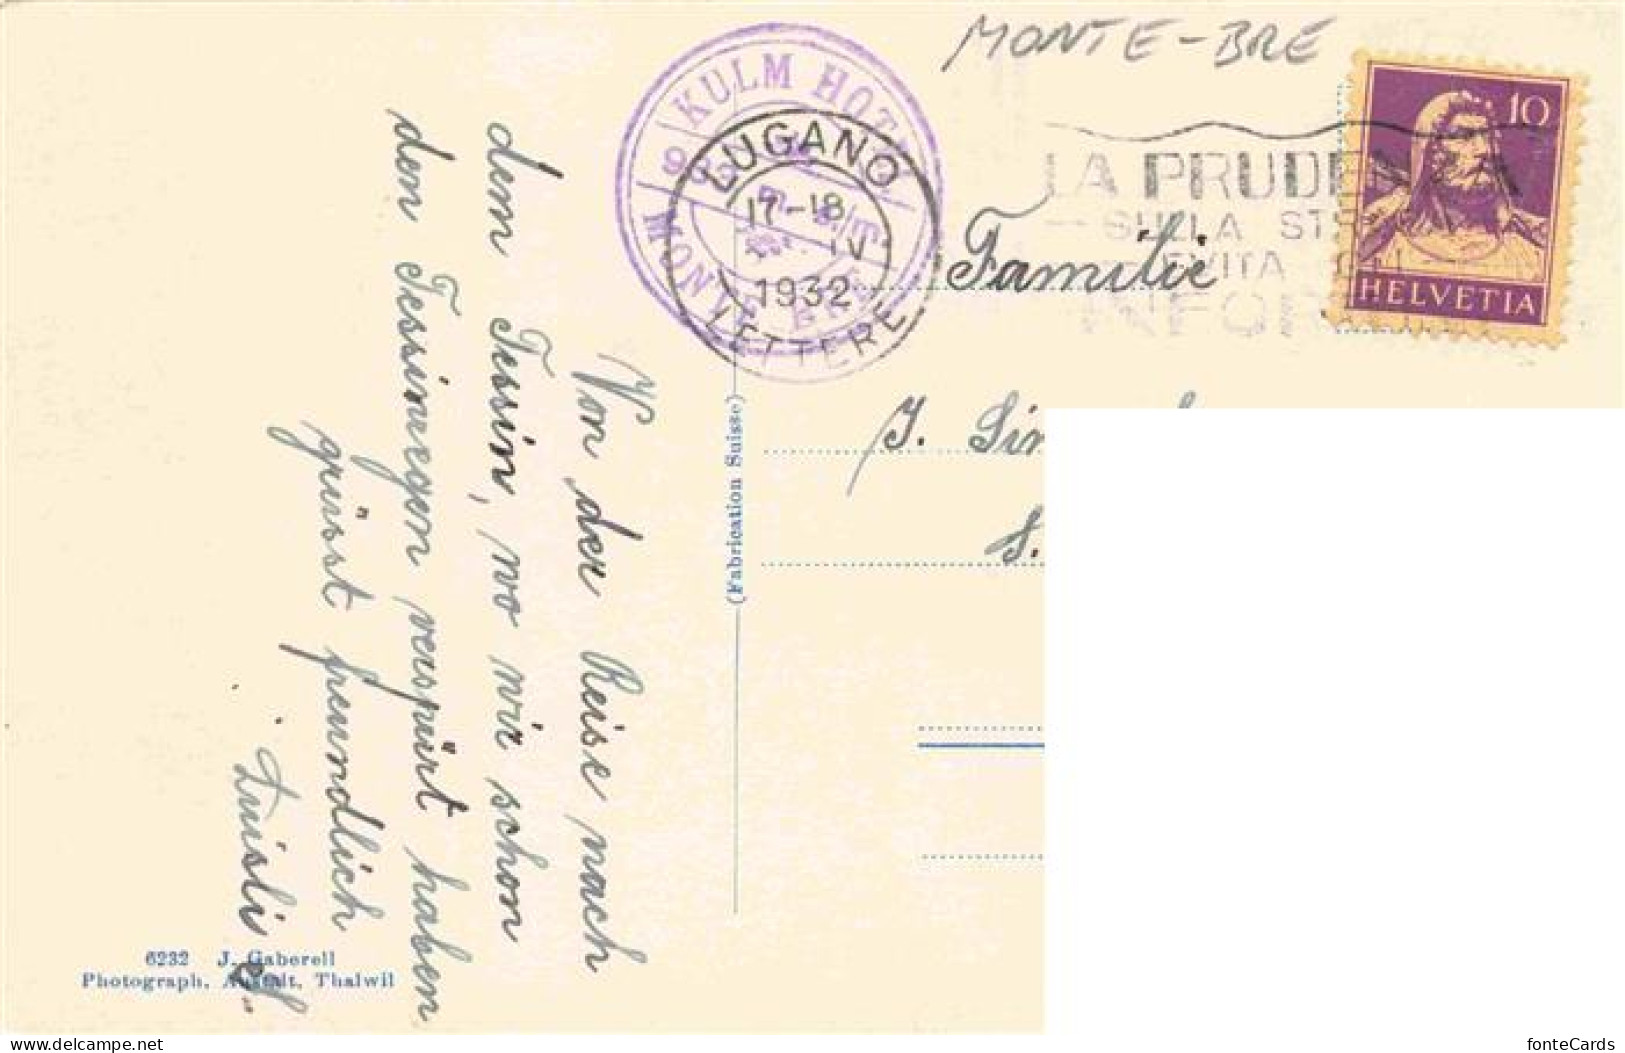 MONTE-BRE
KULM HOTEL
MONTE BRE
LUGANO
17-18
IV
1932
LETTERE
LA PRUDENZA
SULLA ST
EVITA
INFOR
10
HELVETIA
Familie
J.
S.
(Fabrication Suisse)
Von der Reise nach
dem Tessin, wo wir schon
den Tessinregen verspürt haben
grüsst freundlich
Luisli
6232 J. Gaberell
Photograph. Anstalt, Thalwil
fonteCards